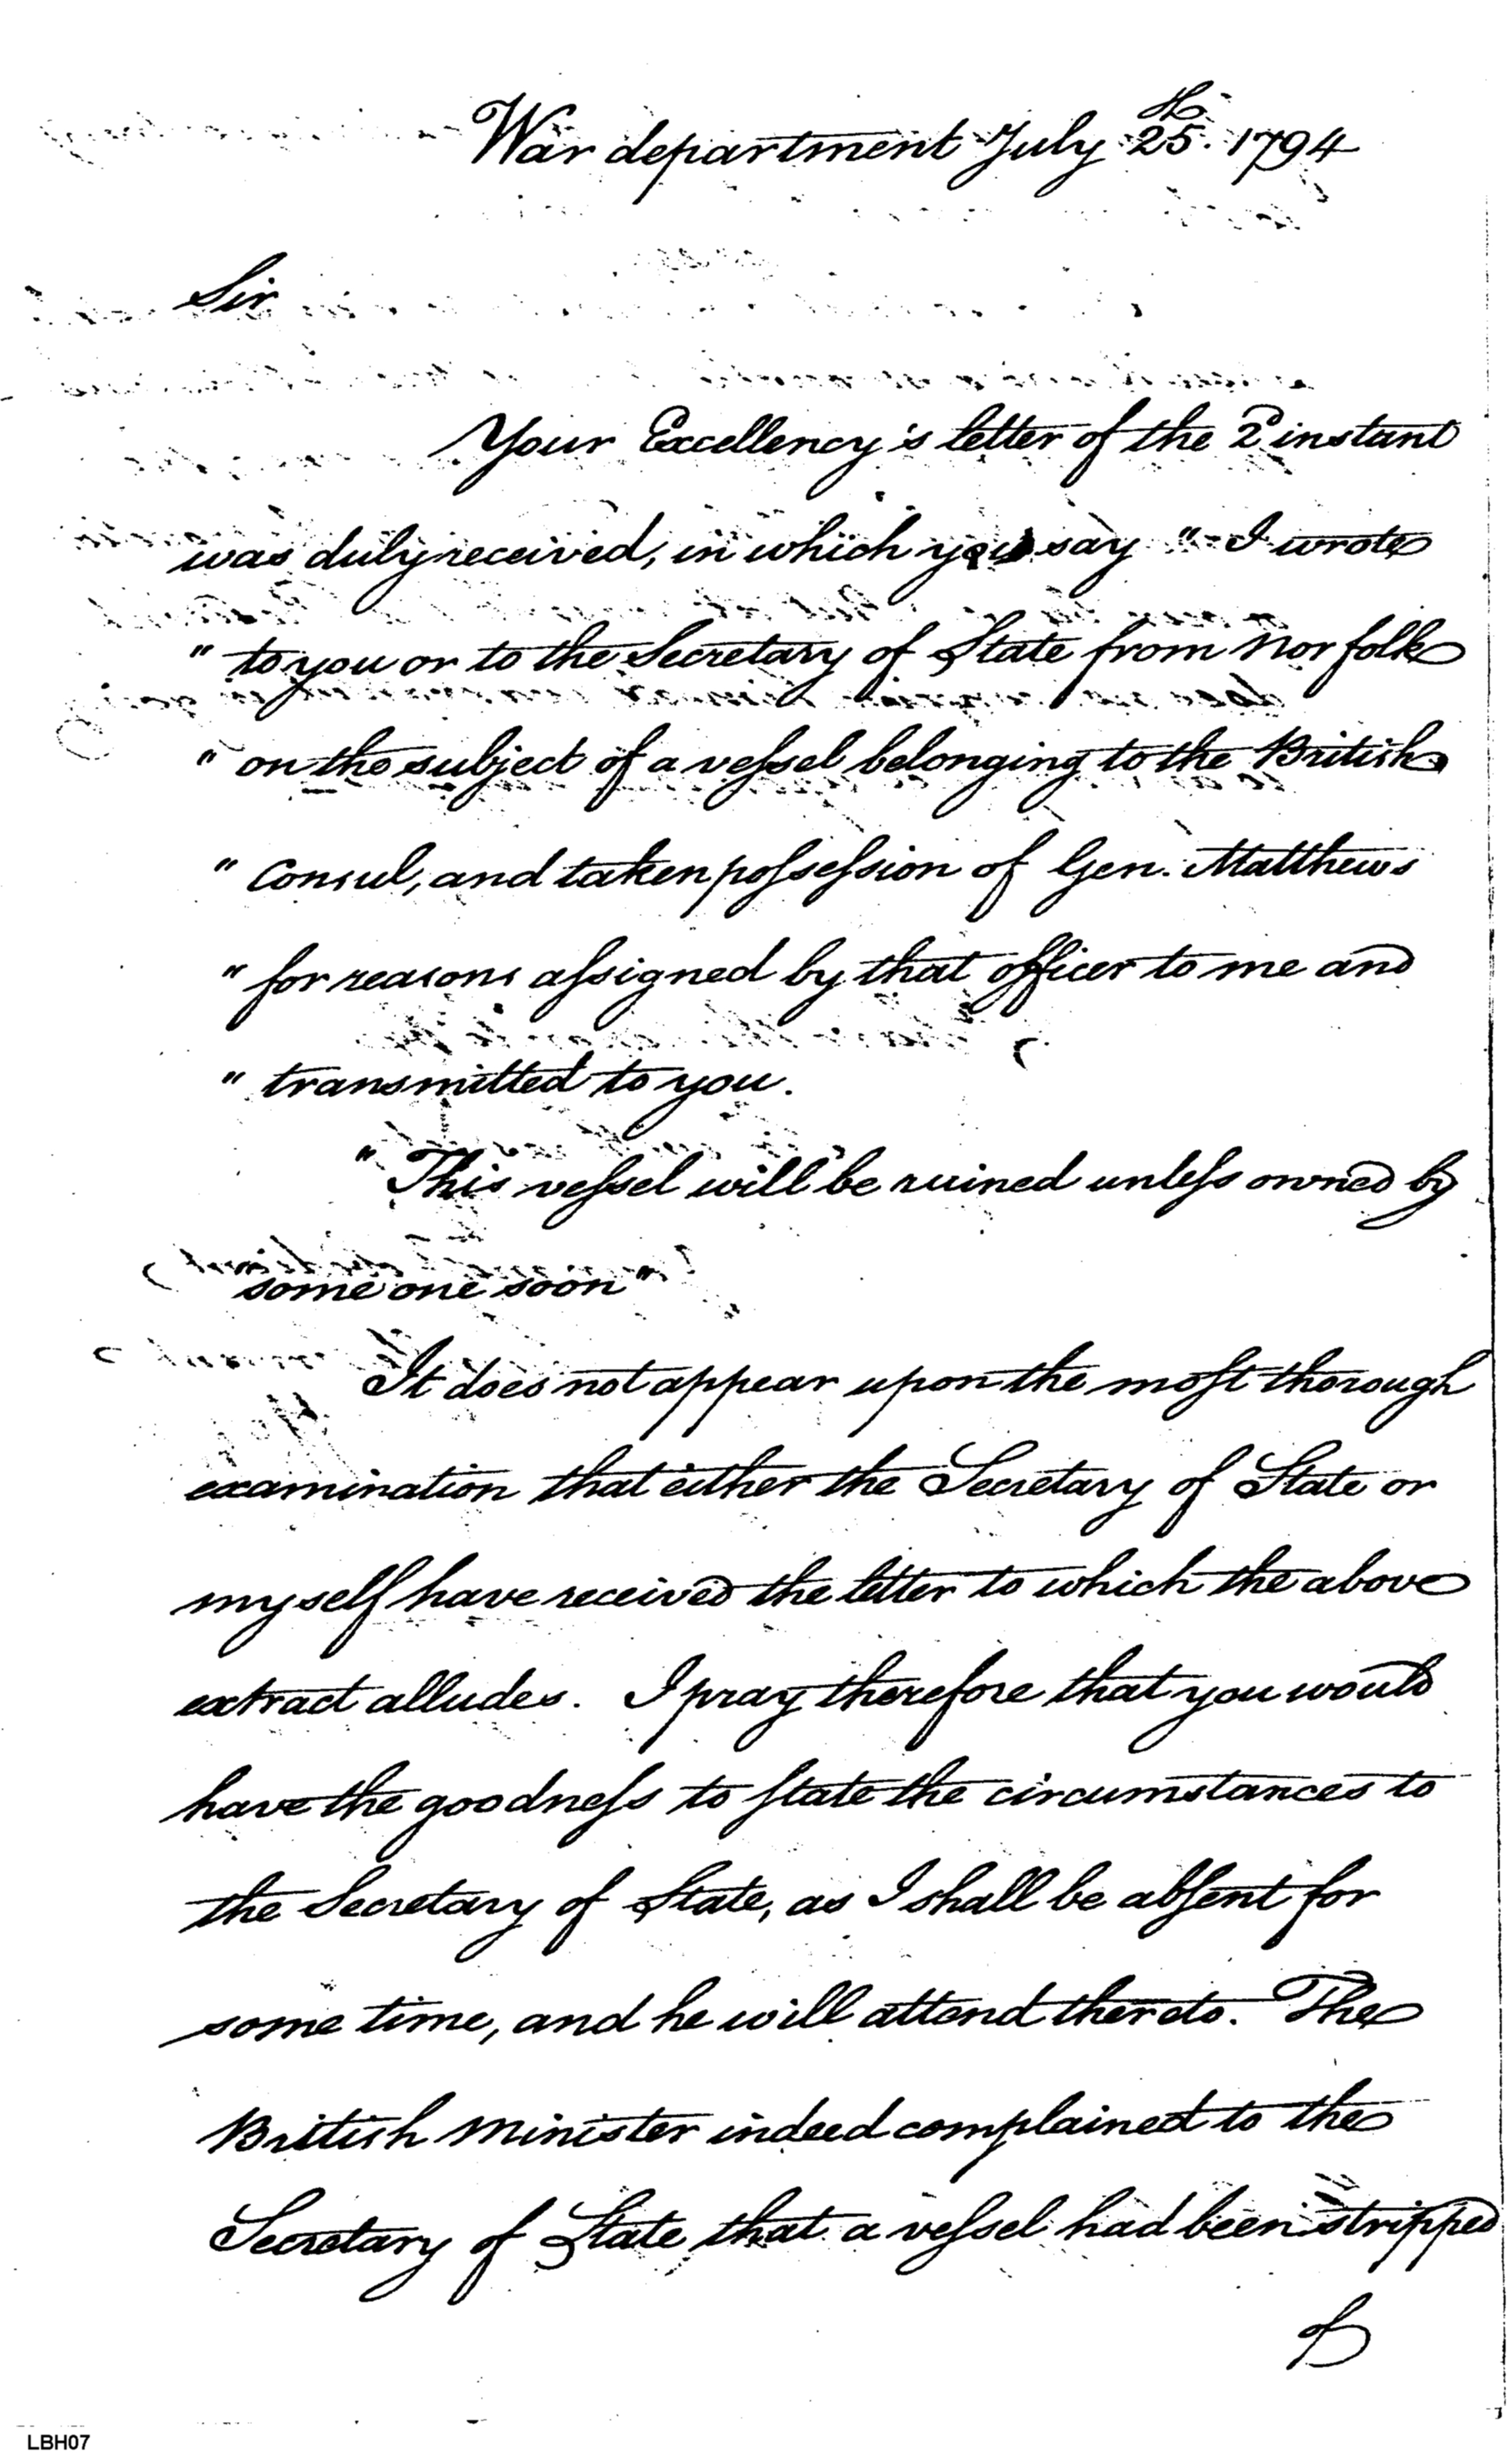 War department July 25th. 1794
Sir
Your Excellency's letter of the 2d instant
was duly received, in which you say "I wrote
" to you or to the Secretary of State from Norfolk
" on the subject of a vessel belonging to the British
" Consul, and taken possession of Gen. Matthews
" for reasons assigned by that officer to me and
" transmitted to you.
" This vessel will be ruined unless owned by
some one soon"
It does not appear upon the most thorough
examination that either the Secretary of State or
myself have received the letter to which the above
extract alludes. I pray therefore that you would
have the goodness to state the circumstances to
the Secretary of State, as I shall be absent for
some time, and he will attend thereto. The
British Minister indeed complained to the
Secretary of State that a vessel had been stripped
of
LBH07